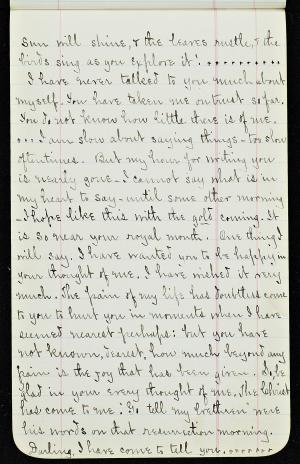 sun will shine, & the leaves rustle, & the
birds sing as you explore it! ..........
I have never talked to you much about
myself. You have taken me on trust so far.
You do not know how little there is of me.
... I am slow about saying things - too slow
oftentimes. But my hour for writing you
is nearly gone - I cannot say what is in
my heart to say - until some other morning
- I hope like this with the gold coming. It
is so near your royal month. One thing I
will say. I have wanted you to be happy in
your thought of me. I have wished it very
much. The pain of my life has doubtless come
to you to hurt you in moments when I have
seemed nearest perhaps: but you have
not known, dearest, how much beyond any
pain is the joy that has been given. So, be
glad in your every thought of me. The Christ
has come to me: Go tell my brethren were
his words on that resurrection morning.
Darling, I have come to tell you.......